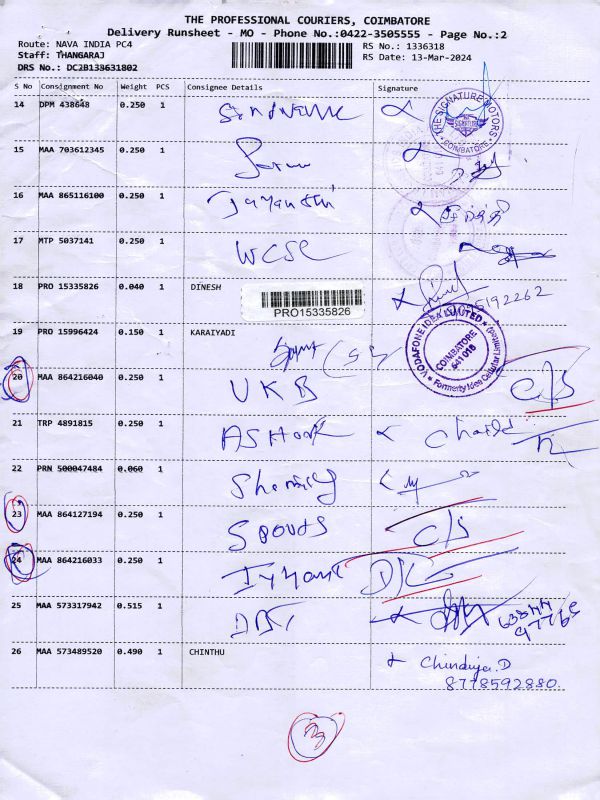 THE PROFESSIONAL COURIERS, COIMBATORE
Delivery Runsheet - MO - Phone No.:0422-3505555 - Page No.:2
Route: NAVA INDIA PC4
RS No.: 1336318
Staff: THANGARAJ
RS Date: 13-Mar-2024
DRS No.: DC2B138631802
S No Consignment No Weight PCS Consignee Details Signature
14 DPM 438648 0.250 1
THE SIGNATURE MOTORS
COIMBATORE
15 MAA 703612345 0.250 1
16 MAA 865116100 0.250 1 Jayanthi
17 MTP 5037141 0.250 1 WCSC
18 PRO 15335826 0.040 1 DINESH
PRO15335826
VODAFONE IDEA LIMITED
COIMBATORE
641 018
Formerly Idea Cellular Limited
19 PRO 15996424 0.150 1 KARAIYADI
20 MAA 864216040 0.250 1 UKB C/S
21 TRP 4891815 0.250 1 ASHOK
22 PRN 500047484 0.060 1
23 MAA 864127194 0.250 1 C/S
24 MAA 864216033 0.250 1 D/C
25 MAA 573317942 0.515 1
26 MAA 573489520 0.490 1 CHINTHU Chindhya.D
8778592880
3